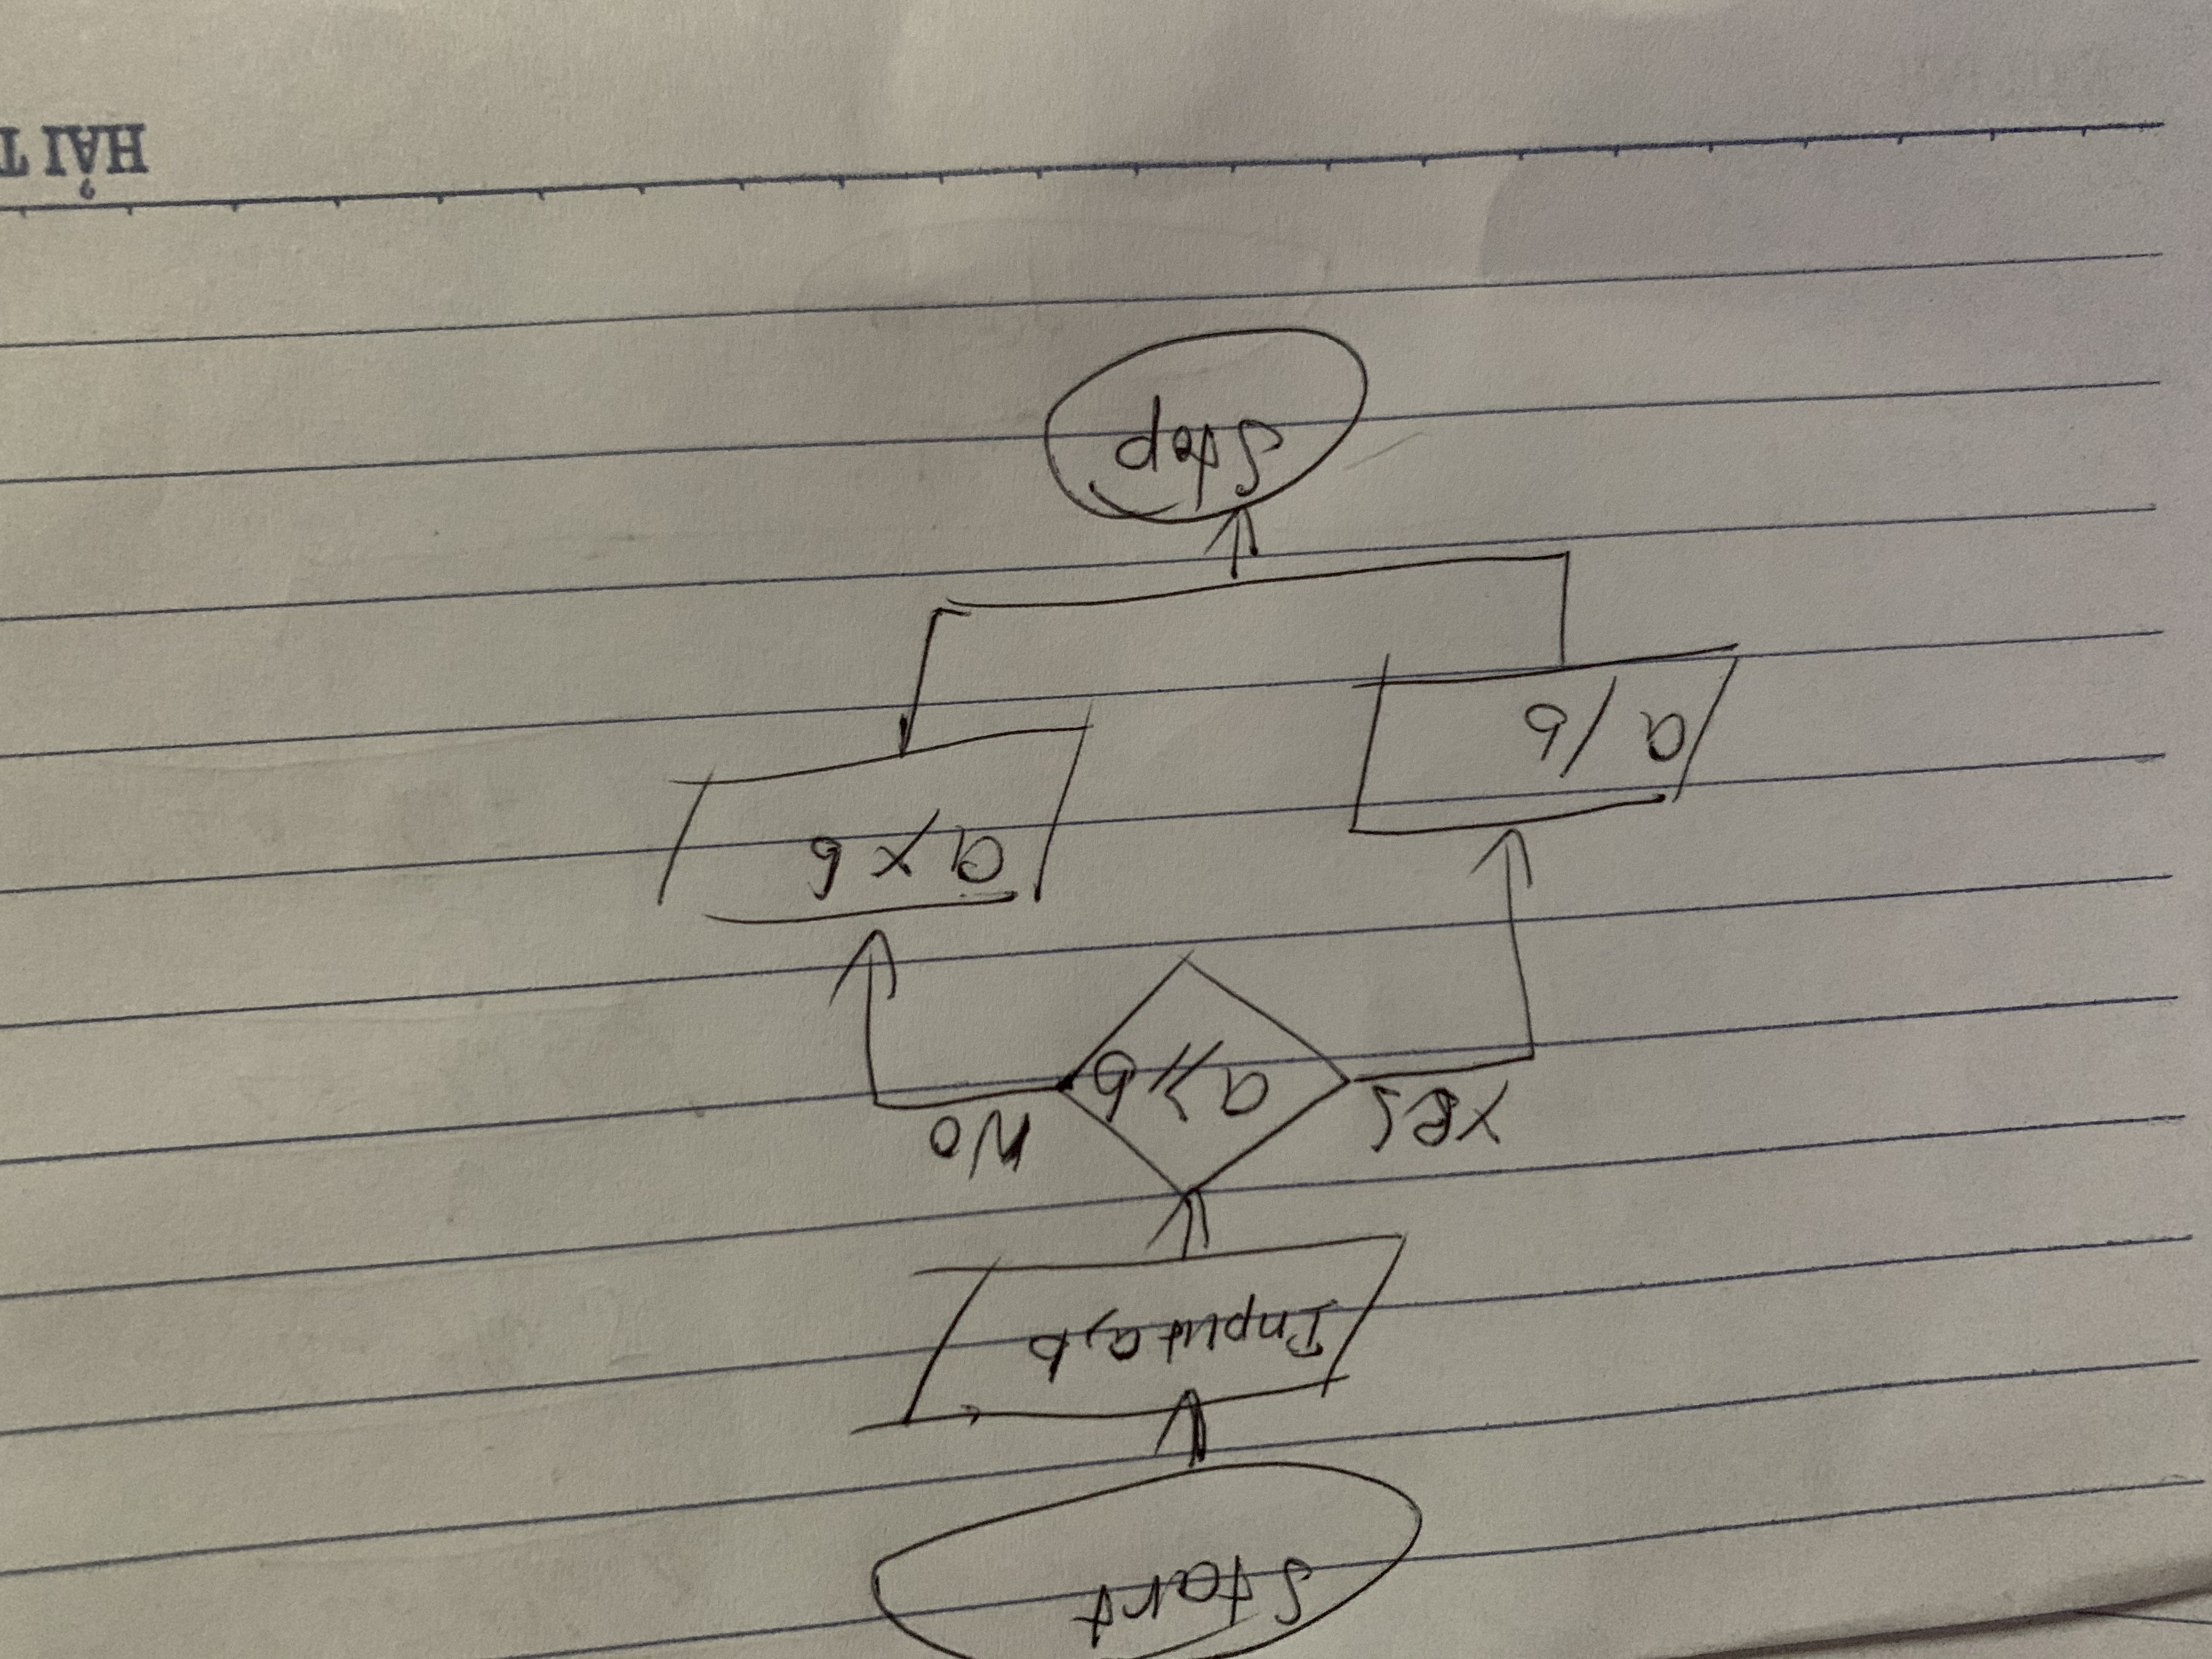 Start
Input a, b
a ≥ b
Yes
No
a / b
a x b
Stop
HẢI T